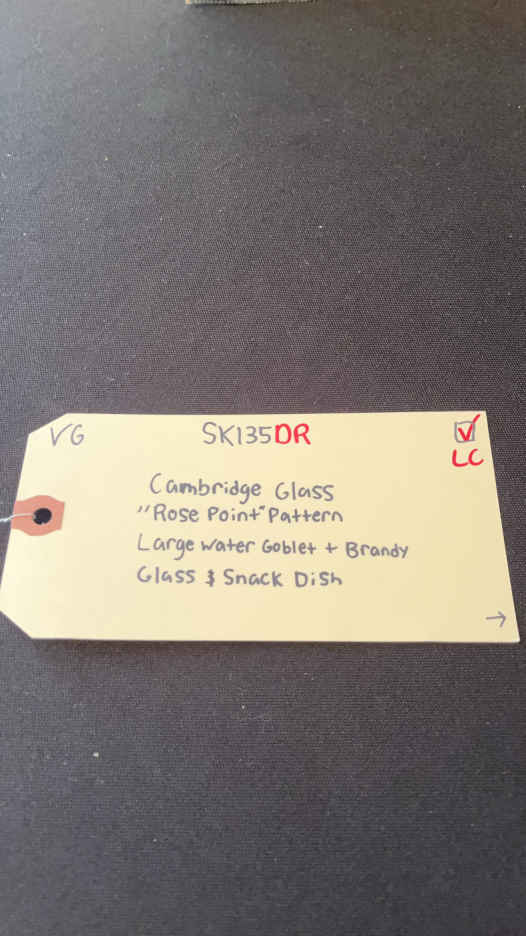 VG SK135DR ☑
LC
Cambridge Glass
"Rose Point" Pattern
Large Water Goblet + Brandy
Glass & Snack Dish
→